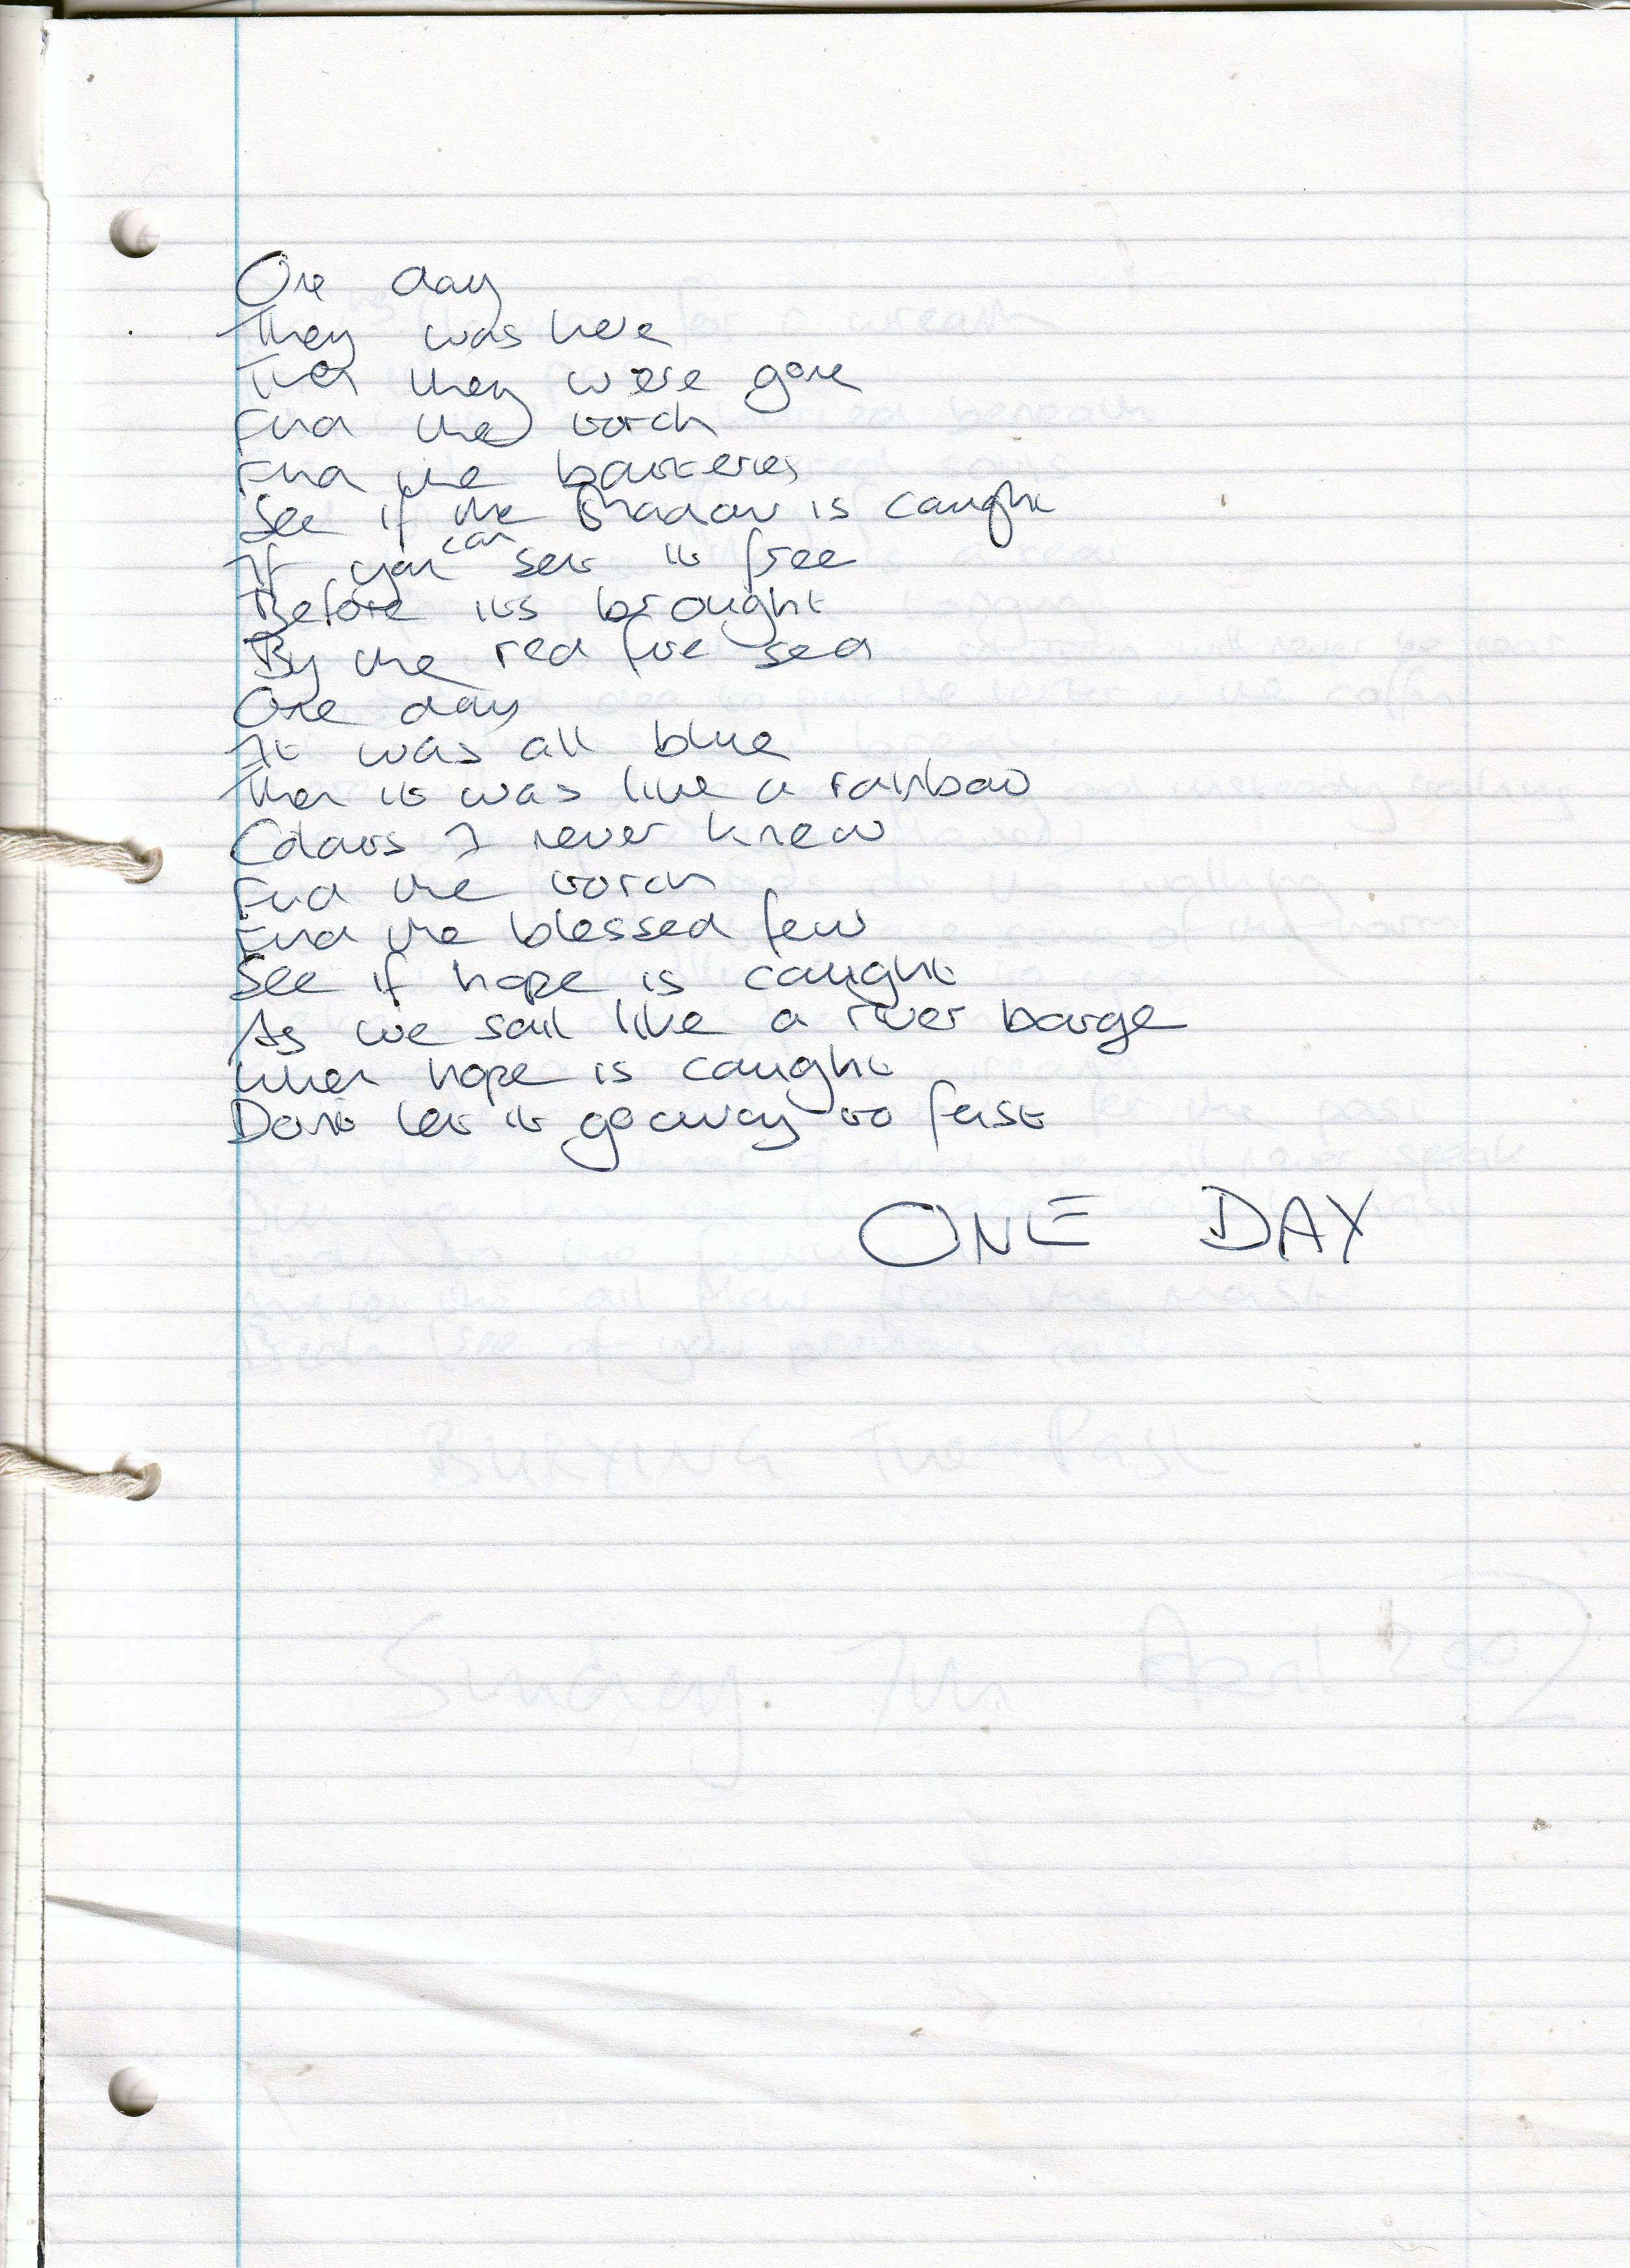 One day
They was here
Then they were gone
Find the torch
Find the batteries
See if the shadow is caught
If you can set it free
Before its brought
By the red fire sea
One day
It was all blue
Then it was like a rainbow
Colours I never knew
Find the torch
Find the blessed few
See if hope is caught
As we sail like a river barge
When hope is caught
Dont let it go away to fast
ONE DAY
BURYING The Past
Sunday 7th April 2002